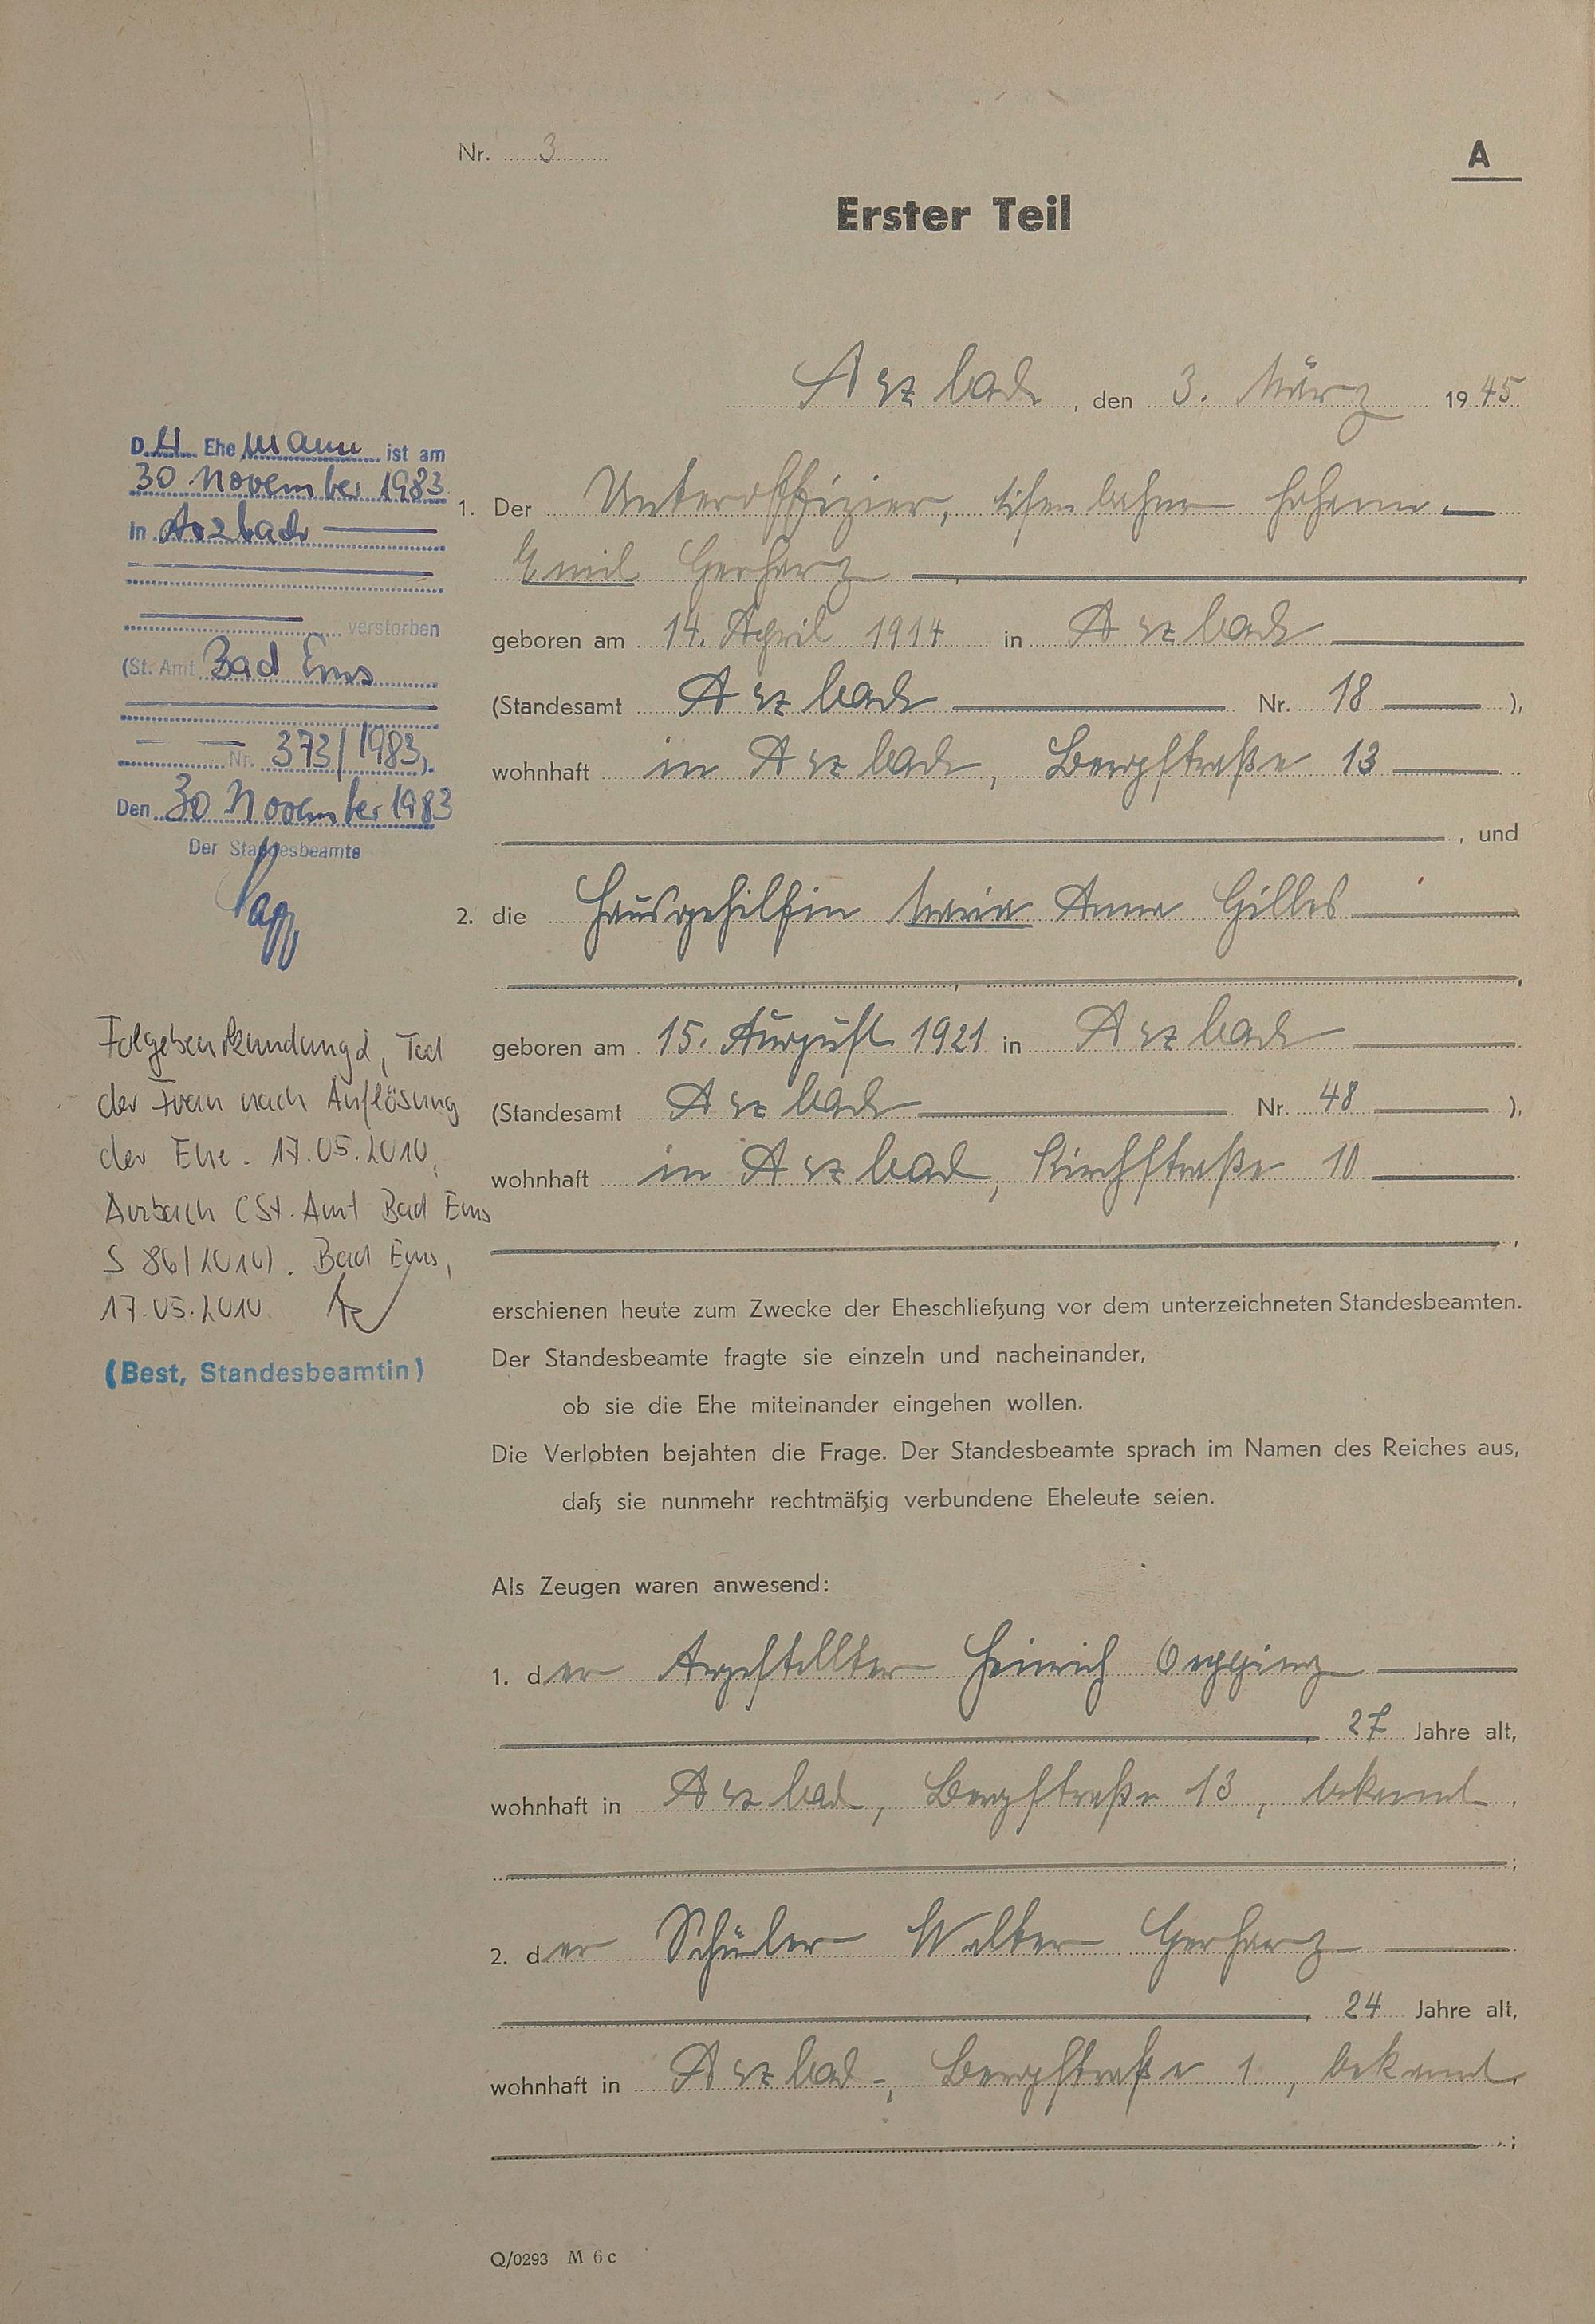 Nr. 3
A
Erster Teil
Arzbach, den 3. März 1945
1. Der Unteroffizier, Eisenbahner Johann
Emil Gerharz,
geboren am 14. April 1914 in Arzbach
(Standesamt Arzbach Nr. 18),
wohnhaft in Arzbach, Bergstraße 13
, und
2. die Hausgehilfin Maria Anna Gilles
,
geboren am 15. August 1921 in Arzbach
(Standesamt Arzbach Nr. 48),
wohnhaft in Arzbach, Kirchstraße 10
,
erschienen heute zum Zwecke der Eheschließung vor dem unterzeichneten Standesbeamten.
Der Standesbeamte fragte sie einzeln und nacheinander,
ob sie die Ehe miteinander eingehen wollen.
Die Verlobten bejahten die Frage. Der Standesbeamte sprach im Namen des Reiches aus,
daß sie nunmehr rechtmäßig verbundene Eheleute seien.
Als Zeugen waren anwesend:
1. der Angestellter Heinrich
27 Jahre alt,
wohnhaft in Arzbach, Bergstraße 13, bekannt.
;
2. der Schüler Walter Gerharz
24 Jahre alt,
wohnhaft in Arzbach, Bergstraße 1, bekannt.
;
Q/0293 M 6 c
D.er Ehemann ist am
30 November 1983
in Arzbach
verstorben
(St. Amt Bad Ems
Nr. 373/1983).
Den 30 November 1983
Der Standesbeamte
Folgebeurkundung, Tod
der Frau nach Auflösung
der Ehe. 17.05.2010,
Arzbach (St. Amt Bad Ems
S 86/2010). Bad Ems,
17.05.2010
(Best, Standesbeamtin)